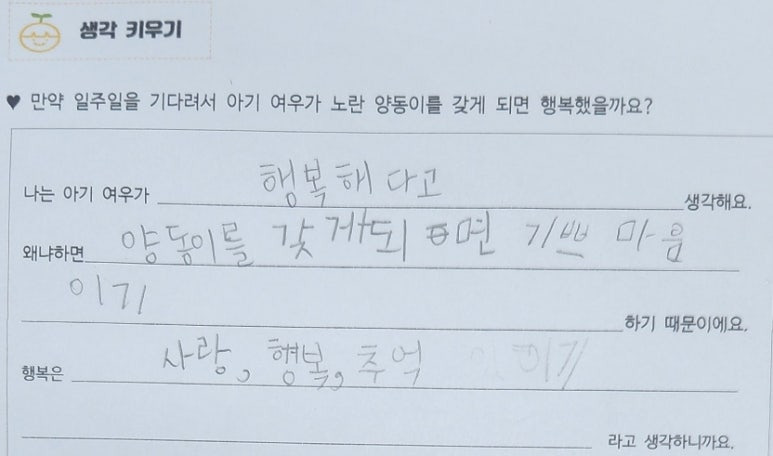 생각 키우기
♥ 만약 일주일을 기다려서 아기 여우가 노란 양동이를 갖게 되면 행복했을까요?
나는 아기 여우가 행복해 다고 생각해요.
왜냐하면 양동이를 갖게되면 기쁘 마음
이기 하기 때문이에요.
행복은 사랑, 형복, 추억
라고 생각하니까요.